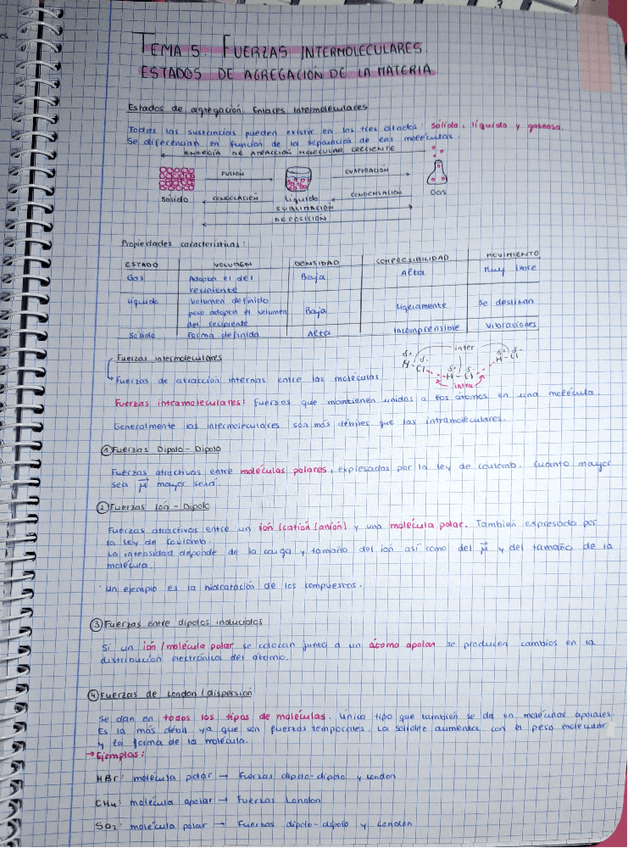 TEMA 5. FUERZAS INTERMOLECULARES
ESTADOS DE AGREGACIÓN DE LA MATERIA
Estados de agregación. Enlaces Intermoleculares
Todas las sustancias pueden existir en los tres estados: sólido, líquido y gaseosa.
Se diferencian en función de la separación de sus moléculas.
ENERGÍA DE ATRACCIÓN MOLECULAR CRECIENTE
FUSIÓN
EVAPORACIÓN
Sólido
CONGELACIÓN
Líquido
CONDENSACIÓN
Gas
SUBLIMACIÓN
DEPOSICIÓN
Propiedades características:
ESTADO VOLUMEN DENSIDAD COMPRESIBILIDAD MOVIMIENTO
Gas Adopta el del recipiente Baja Alta Muy libre
Líquido Volumen definido pero adopta el volumen del recipiente Baja Ligeramente Se deslizan
Sólido Forma definida Alta Incomprensible Vibraciones
Fuerzas intermoleculares
inter
H-Cl H-Cl H-Cl
intra
Fuerzas de atracción internas entre las moléculas
Fuerzas intramoleculares: Fuerzas que mantienen unidas a los átomos en una molécula.
Generalmente las intermoleculares son más débiles que las intramoleculares.
① Fuerzas Dipolo-Dipolo
Fuerzas atractivas entre moléculas polares, expresadas por la ley de coulomb. Cuanto mayor
sea μ mayor será.
② Fuerzas Ión-Dipolo
Fuerzas atractivas entre un ión (catión/anión) y una molécula polar. También expresada por
la ley de Coulomb.
La intensidad depende de la carga y tamaño del ión así como del μ y del tamaño de la
molécula.
Un ejemplo es la hidratación de los compuestos.
③ Fuerzas entre dipolos inducidos
Si un ión/molécula polar se colocan junto a un átomo apolar se producen cambios en la
distribución electrónica del átomo.
④ Fuerzas de London/dispersión
Se dan en todos los tipos de moléculas. Único tipo que también se da en moléculas apolares.
Es la más débil ya que son fuerzas temporales. La solidez aumenta con el peso molecular
y la forma de la molécula.
→ Ejemplos:
HBr: molécula polar → Fuerzas dipolo-dipolo y London
CH4: molécula apolar → Fuerzas London
SO2: molécula polar → Fuerzas dipolo-dipolo y London